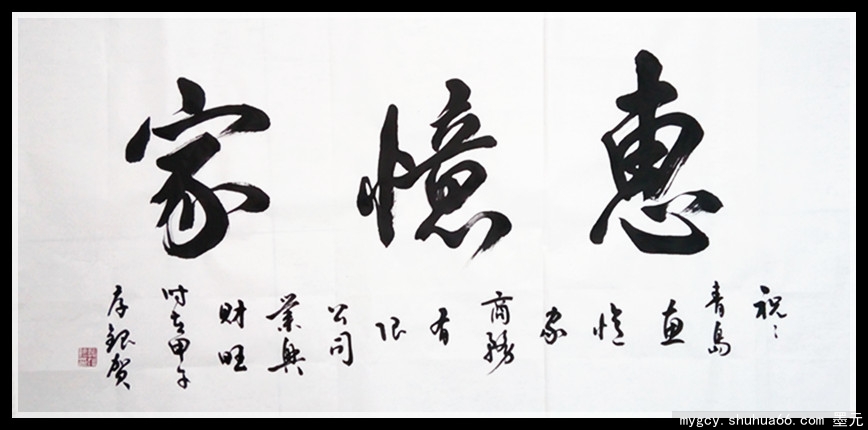 惠憶家
祝:
青島
惠
憶
家
商務
有
限
公司
業興
財旺
時在甲午
存銀賀
mygcy.shuhua66.com 墨元